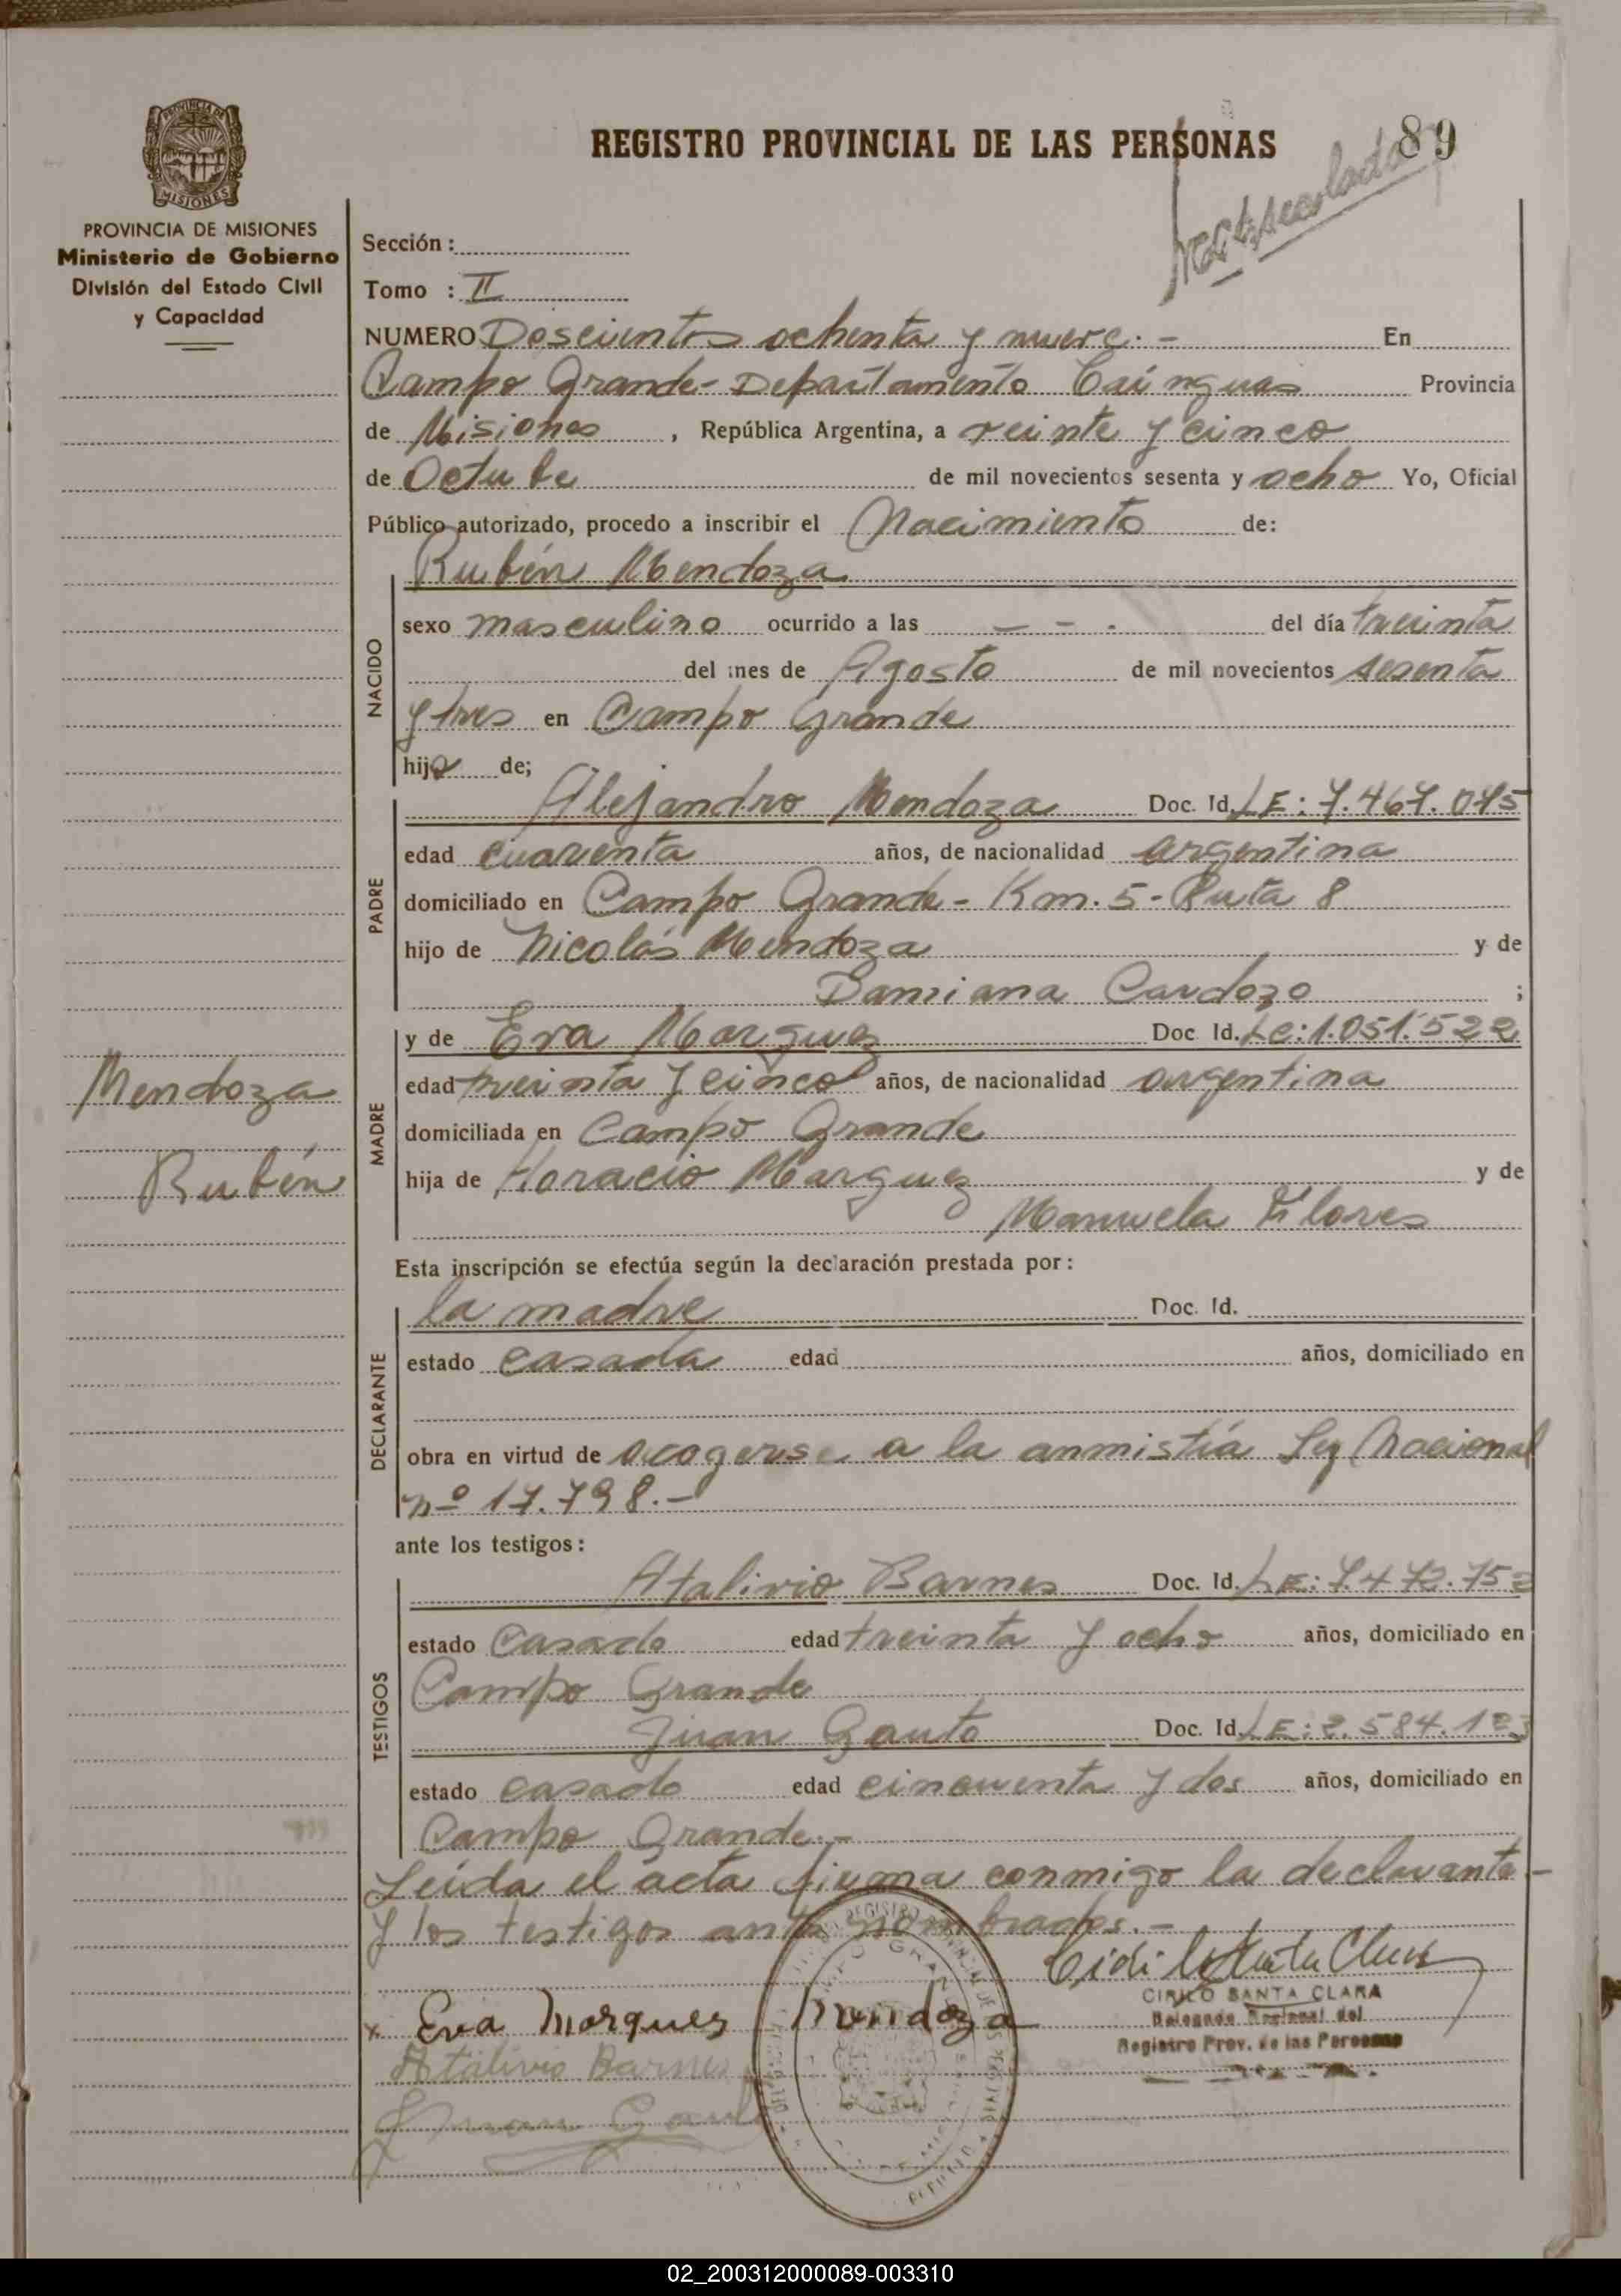 REGISTRO PROVINCIAL DE LAS PERSONAS
89
PROVINCIA DE MISIONES
MISIONES
PROVINCIA DE MISIONES
Ministerio de Gobierno
División del Estado Civil
y Capacidad
Sección :
Tomo : II
NUMERO Doscientos ochenta y nueve. - En
Campo Grande - Departamento Cainguas Provincia
de Misiones , República Argentina, a veinte y cinco
de Octubre de mil novecientos sesenta y ocho Yo, Oficial
Público autorizado, procedo a inscribir el Nacimiento de:
Rubén Mendoza
NACIDO
sexo masculino ocurrido a las - - - del día treinta
del mes de Agosto de mil novecientos sesenta
y tres en Campo Grande
hijo de;
PADRE
Alejandro Mendoza Doc. Id. LE: 7.467.075
edad cuarenta años, de nacionalidad argentina
domiciliado en Campo Grande - Km. 5 - Ruta 8
hijo de Nicolás Mendoza y de
Damiana Cardozo ;
MADRE
y de Eva Marquez Doc Id. Lc: 1.051.522
edad treinta y cinco años, de nacionalidad argentina
domiciliada en Campo Grande
hija de Horacio Marquez y de
Manuela Flores
Mendoza
Rubén
Esta inscripción se efectúa según la declaración prestada por :
DECLARANTE
la madre Doc. Id.
estado casada edad años, domiciliado en
obra en virtud de acogerse a la anmistía Ley Nacional
nº 17.798.-
ante los testigos :
TESTIGOS
Atalivio Barnes Doc. Id. LE:
estado casado edad treinta y ocho años, domiciliado en
Campo Grande
Juan Gauto Doc. Id. LE: 2.584.123
estado casado edad cincuenta y dos años, domiciliado en
Campo Grande.-
Leída el acta firma conmigo la declarante -
y los testigos antes nombrados.-
CIRILO SANTA CLARA
Delegado Regional del
Registro Prov. de las Personas
x Eva Marques Mendoza
Atalivio Barnes
Juan Gauto
02_200312000089-003310